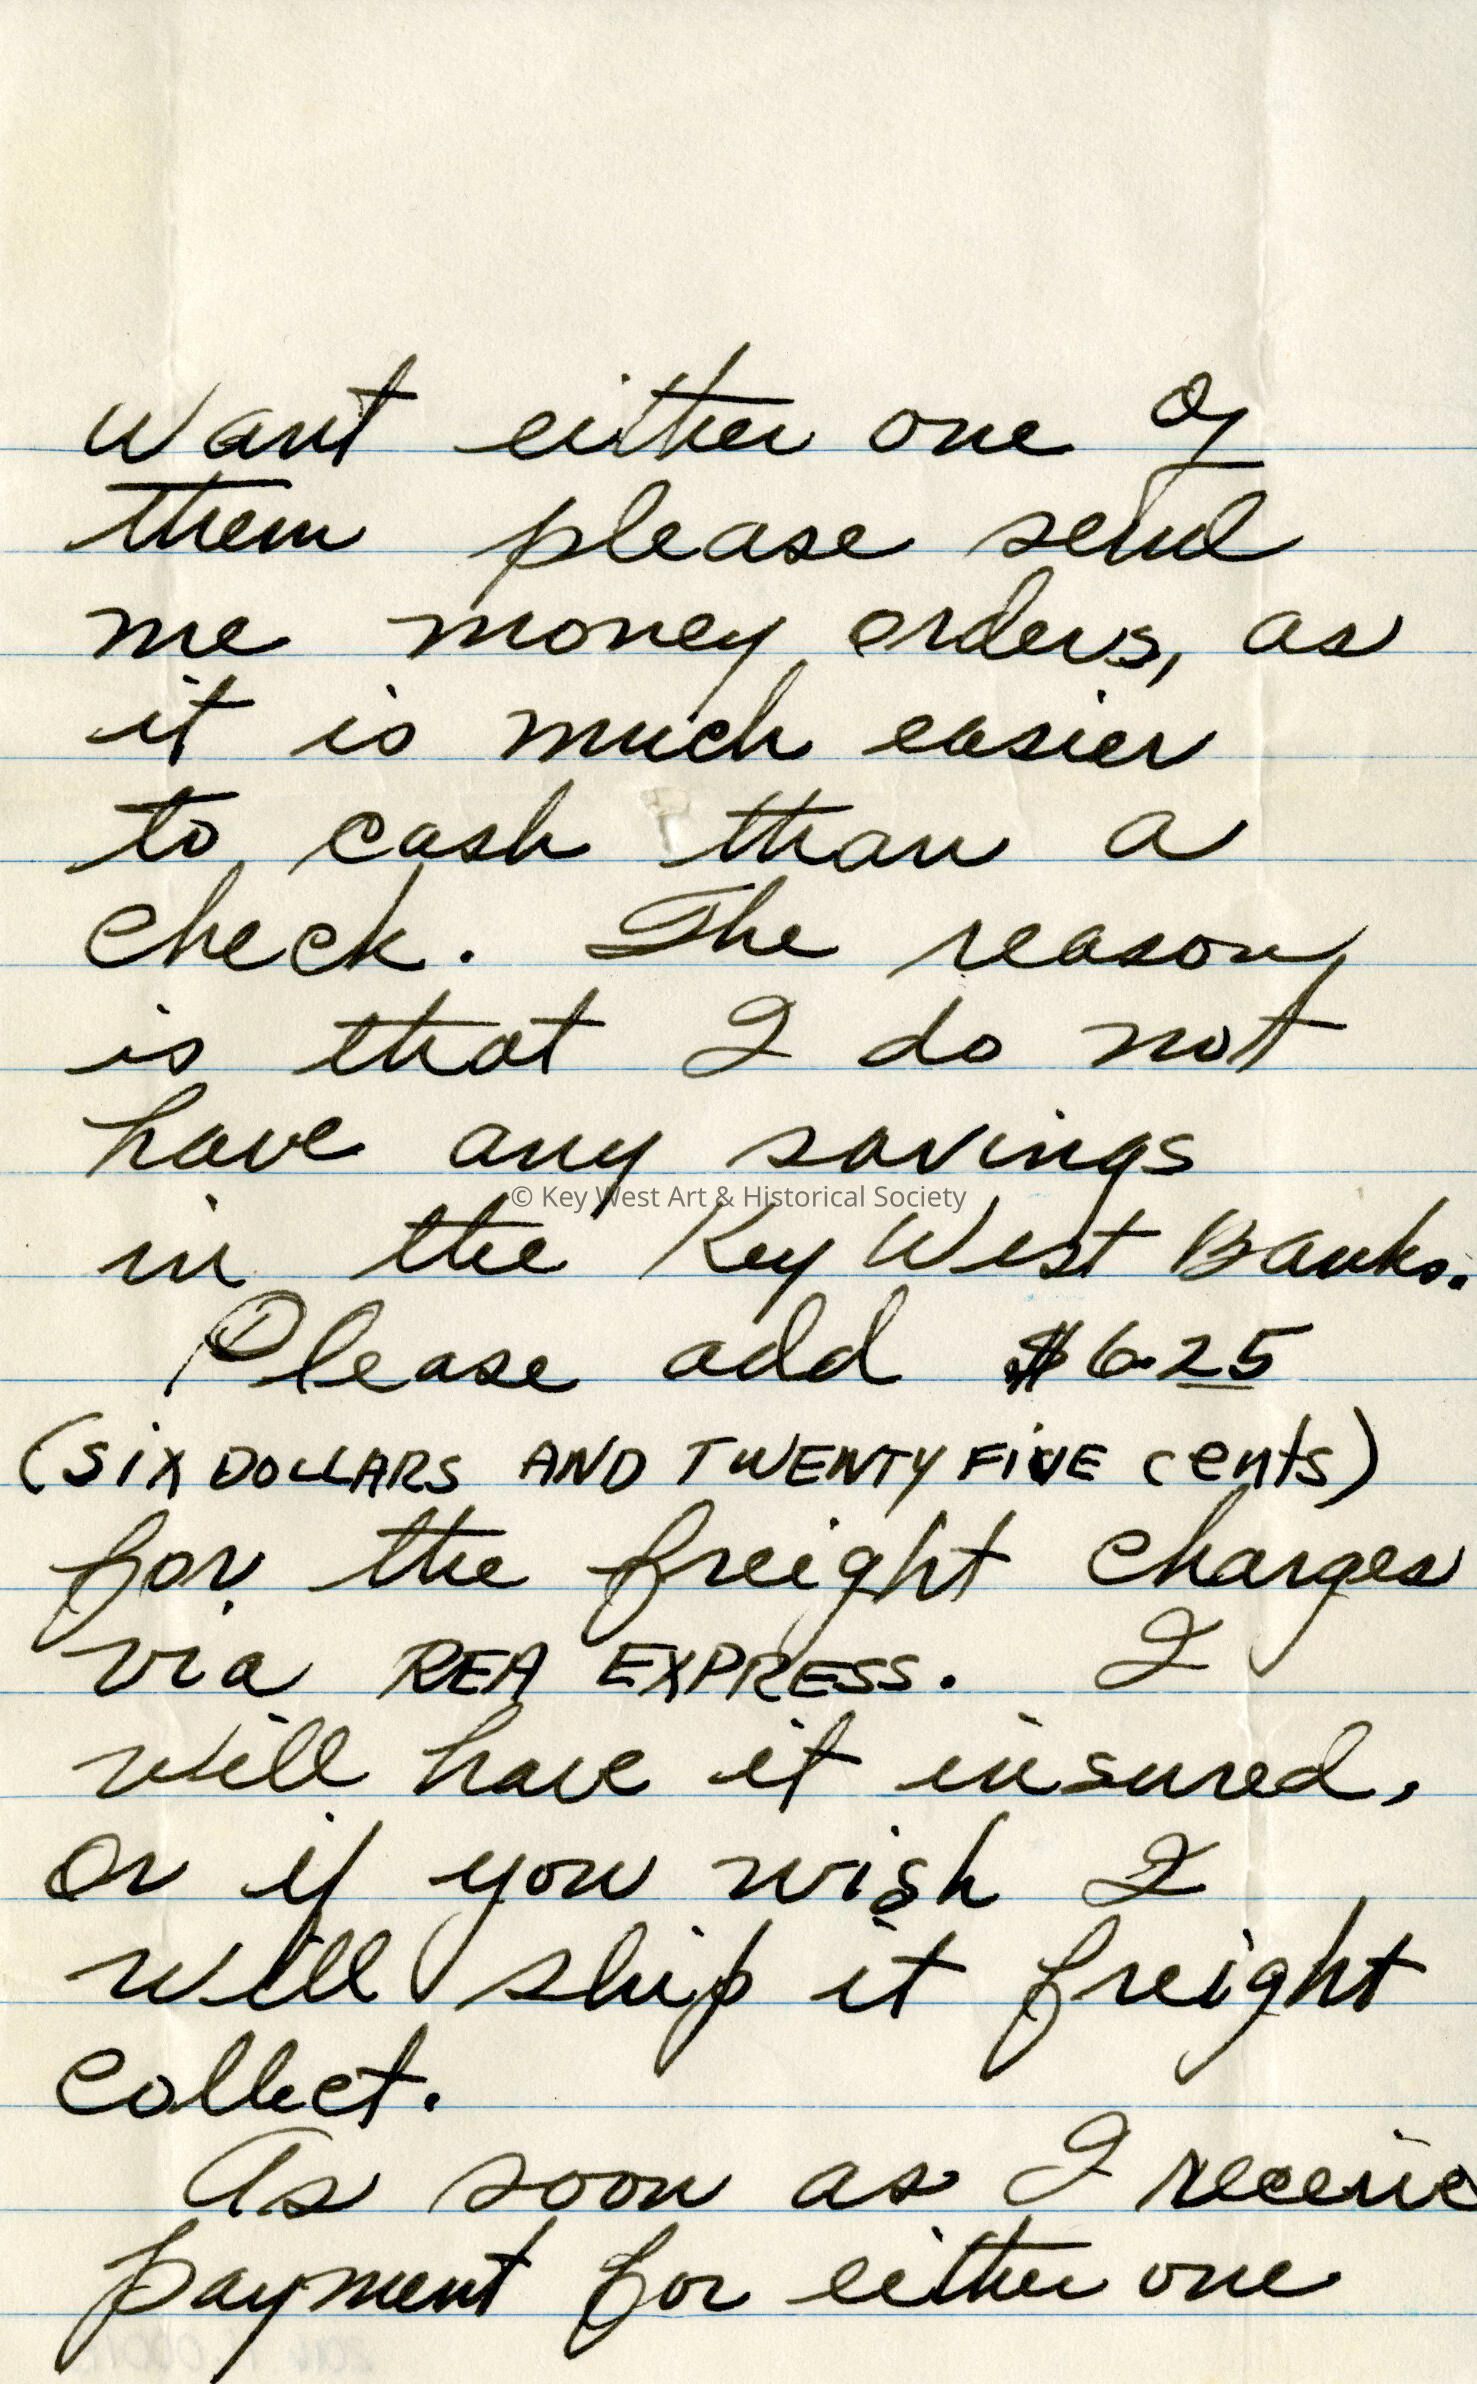 want either one of
them please send
me money orders, as
it is much easier
to cash than a
check. The reason
is that I do not
have any savings
© Key West Art & Historical Society
in the Key West Banks.
Please add $6.25
(SiX DOLLARS AND TWENTY FiVE cents)
for the freight charges
via REA EXPRESS. I
will have it insured,
or if you wish I
will ship it freight
collect.
As soon as I receive
payment for either one